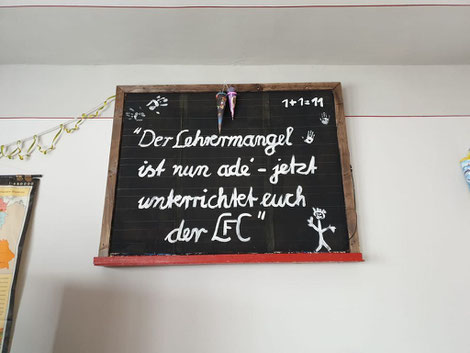 1+1=11
"Der Lehrermangel
ist nun adé - jetzt
unterrichtet euch
der LFC"